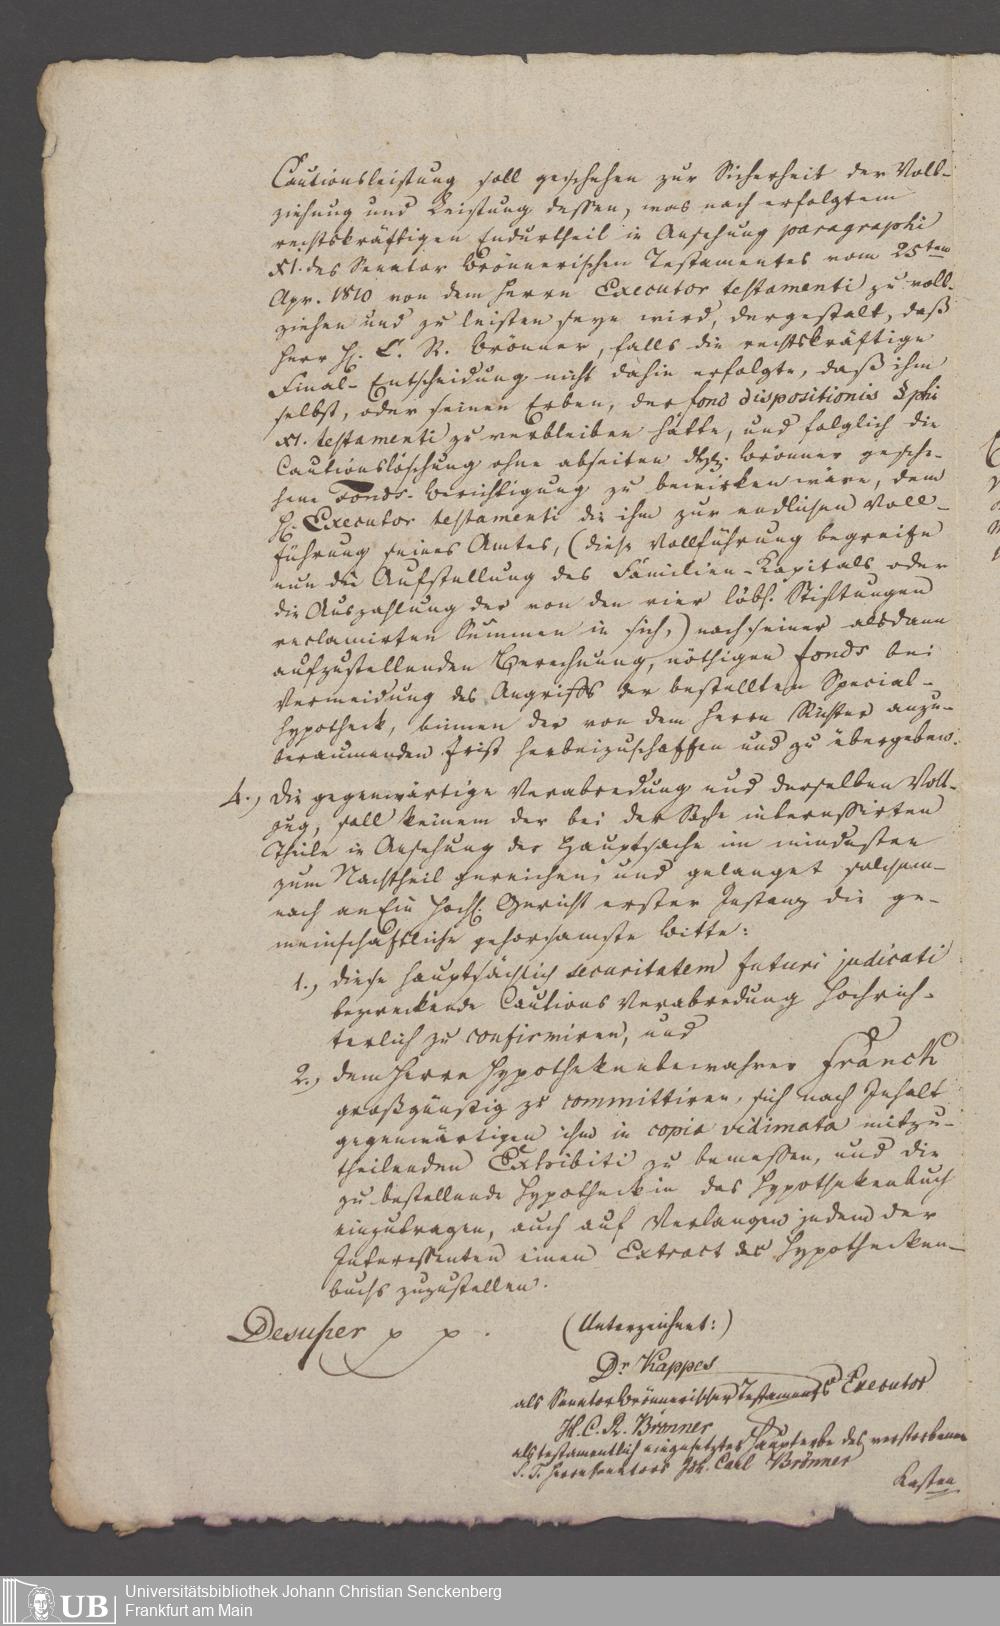 Cautionsleistung soll geschehen zur Sicherheit der Voll-
ziehung und Leistung dessen, was nach erfolgtem
rechtskräftigen Endurtheil in Ansehung paragraphi
XI. des Senator Brönnerischen Testamentes vom 25ten
Apr. 1810 von dem Herrn Executor testamenti zu voll-
ziehen und zu leisten seyn wird, dergestalt, daß
Herr H. C. R. Brönner, falls die rechtskräftige
Final-Entscheidung nicht dahin erfolgte, daß ihm
selbst, oder seinen Erben, der fond dispositionis §phi
XI. testamenti zu verbleiben hätte, und folglich die
Cautionslöschung ohne abseiten Brönner gesche-
hene Fonds-Berichtigung zu bewirken wäre, dem
H. Executor testamenti die ihm zur endlichen Voll-
führung seines Amtes, (diese Vollführung begreife
nun die Aufstellung des Familien-Kapitals oder
die Auszahlung der von den vier löbl. Stiftungen
reclamirten Summen in sich,) nach seiner alsdann
aufzustellenden Berechnung, nöthigen fonds bei
Vermeidung des Angriffs der bestellten Special-
hypotheck, binnen der von dem Herrn Richter anzu-
beraumenden Frist herbeizuschaffen und zu übergeben.
4., Die gegenwärtige Verabredung und derselben Voll-
zug, soll keinem der bei der Sache interessirten
Theile in Ansehung der Hauptsache im mindesten
zum Nachtheil gereichen, und gelanget solchem-
nach an Ein Hochl. Gericht erster Instanz die ge-
meinschaftliche gehorsamste Bitte:
1., diese hauptsächlich securitatem futuri judicati
bezweckende Cautions Verabredung hochrich-
terlich zu confirmiren, und
2., dem Herrn Hypothekenbewahrer Franck
großgünstig zu committiren, sich nach Inhalt
gegenwärtigen ihm in copia vidimata mitzu-
theilenden Exhibiti zu bemessen, und die
zu bestellende Hypotheck in das Hypothekenbuch
einzutragen, auch auf Verlangen jedem der
Interessenten einen Extract des Hypothecken-
buchs zuzustellen.
Desuper p p.
(Unterzeichnet:)
Dr. Kappes
als Senator Brönnerischer Testaments Executor
H. C. R. Brönner
als testamentlich eingesetzter Haupterbe des verstorbenen
S. T. Herrn Senators Joh. Carl Brönner
Kosten
UB
Universitätsbibliothek Johann Christian Senckenberg
Frankfurt am Main